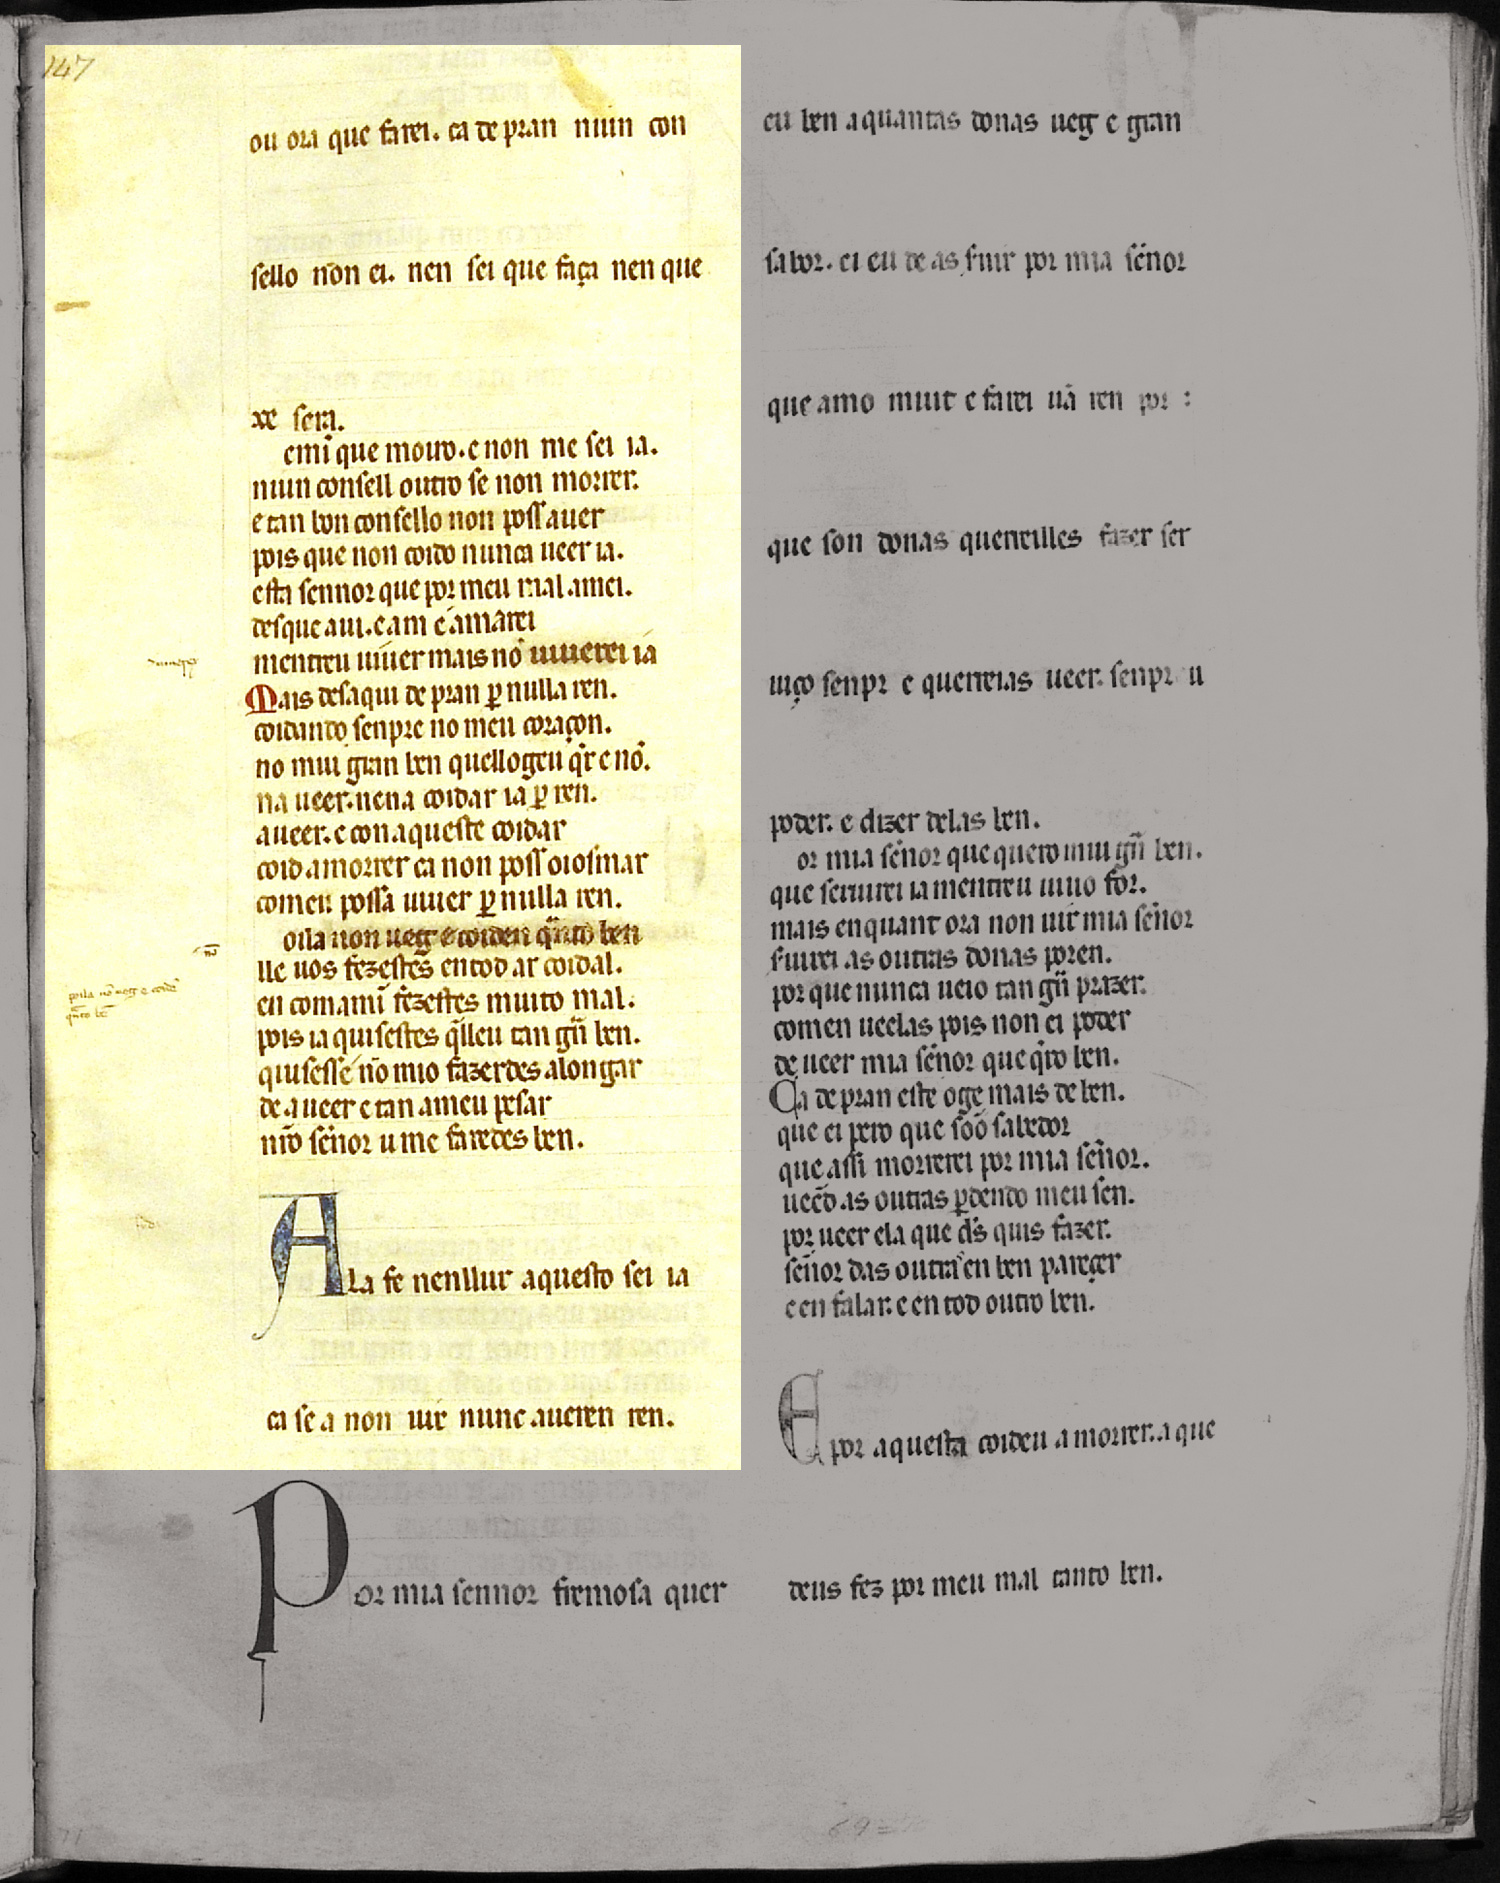 147
ou ora que farei. ca de pran niun con
sello nõn ei. nen sei que faça nen que
xe sera.
emĩ que mouro. e non me sei ia.
niun consell outro se non morrer.
e tan bon consello non poss auer
pois que non coido nunca ueer ia.
esta sennor que por meu mal amei.
des que a ui. e am e amarei
mentreu uiuer mais nõ uiuerei ia
Mais des aqui de pran ꝑ nulla ren.
coidando senpre no meu coraçon.
no mui gran ben quell ogeu q̃r e nõ.
na ueer. nen a coidar ia ꝑ ren.
a ueer. e con aqueste coidar
coid a morrer ca non poss oiosmar
comeu possa uiuer ꝑ nulla ren.
oila non ueg e coiden q̃nto ben
lle uos fezestes en tod ar coidal.
en com a mĩ fezestes muito mal.
pois ia quisestes q̃lleu tan gñ ben.
quisesse nõ mio fazerdes alongar
de a ueer e tan a meu pesar
nr̃o sẽnor u me faredes ben.
ALa fe nenllur aquesto sei ia
ca se a non uir nunc aueren ren.
Por mia sennor fremosa quer
eu ben a quantas donas ueg e gran
sabor. ei eu de as seruir por mia sẽnor
que amo muit e farei ũa ren por :
que son donas querreilles fazer ser
uiço senpr e querreias ueer. senpr u
poder. e dizer delas ben.
or mia sẽnor que quero mui gñ ben.
que seruirei ia mentreu uiuo for.
mais enquant ora non uir mia sẽnor
seruirei as outras donas poren.
por que nunca ueio tan gñ prazer.
comen ueelas pois non ei poder
de ueer mia sẽnor que q̃ro ben.
Ca de pran este oge mais de ben.
que ei pero que sõo sabedor
que assi morrerei por mia sẽnor.
ueẽd as outras ꝑdendo meu sen.
por ueer ela que d̃s quis fazer.
sẽnor das outras en ben pareçer
e en falar. e en tod outro ben.
E por aquesta coideu a morrer. a que
deus fez por meu mal tanto ben.